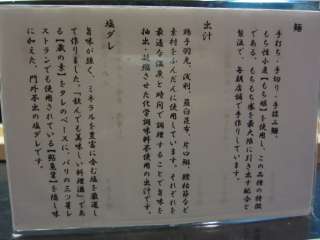 麺
手打ち・手切り・手揉み麺。
もち性小麦【もち姫】を使用し、この品種の特徴
である、もちもち感を最大限に引き出す配合と
製法で、毎朝店舗で手作りしています。
出汁
鶏子羽先、浅利、眉白昆布、片口鰯、鰹枯節など
素材をふんだんに使用しています。それぞれを
最適な温度と時間で調理することで旨味を
抽出・凝縮させた化学調味料不使用の出汁です。
塩ダレ
旨味が強く、ミネラルを豊富に含む塩を厳選し
て作りました。「飲んでも美味しい料理酒」であ
る【蔵の素】をタレのベースに、パリの三ツ星レ
ストランでも使用されている【鮎魚醤】を隠し味
に加えた、門外不出の塩ダレです。